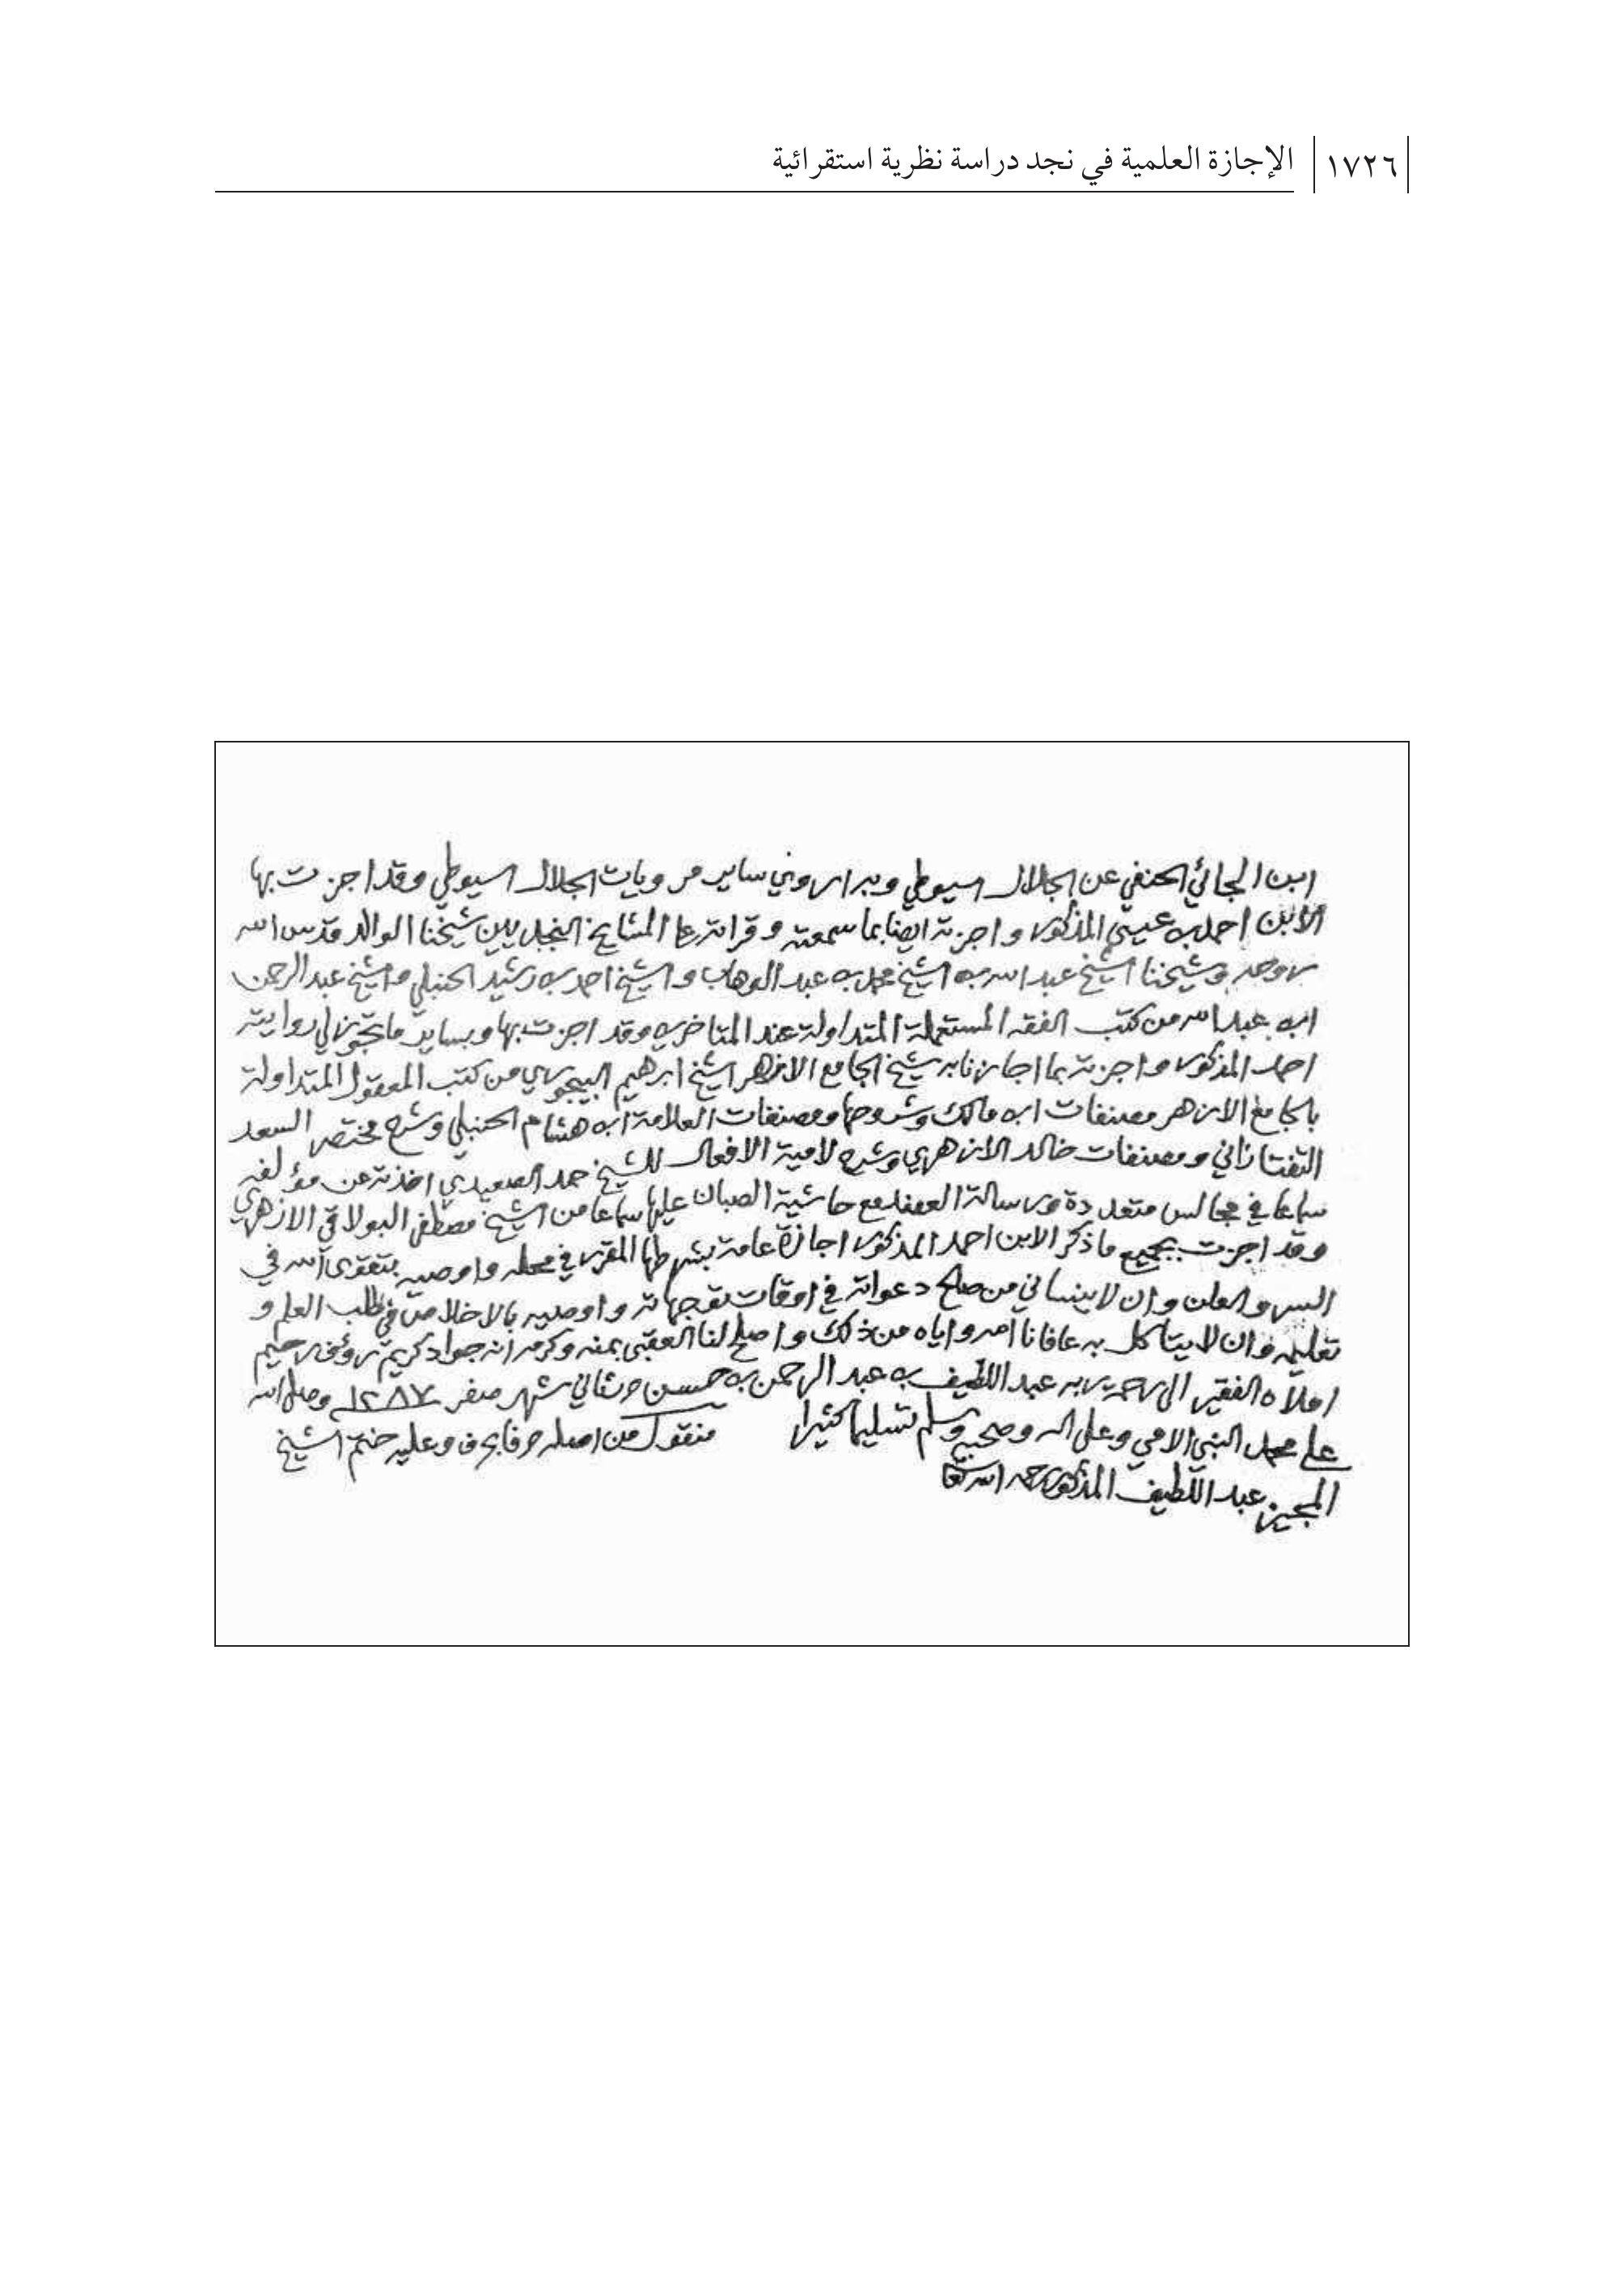 ١٧٢٦ الإجازة العلمية في نجد دراسة نظرية استقرائية
ابن الجائي الحنفي عن الجلال اسيوطي وبه اروي ساير مرويات الجلال اسيوطي وقد اجزت بها
الابن احمد به عيسى المذكور واجزته ايضا بما سمعته وقراته على المشايخ النجديين شيخنا الوالد قدس الله
روحه وشيخنا الشيخ عبد الله به الشيخ محمد به عبد الوهاب والشيخ احمد به رشيد الحنبلي والشيخ عبد الرحمن
ابه عبد الله من كتب الفقه المستعملة المتداولة عند المتاخريه وقد اجزت بها وبساير ما تجوز لي روايته
احمد المذكور واجزته بما اجازنا به شيخ الجامع الازهر الشيخ ابرهيم البيجوري من كتب المعقول المتداولة
بالجامع الازهر مصنفات ابه مالك وشروحها ومصنفات العلامة ابه هشام الحنبلي وشرح مختصر السعد
التفتازاني ومصنفات خالد الازهري وشرح لامية الافعال للشيخ حمد الصعيدي اخذته عن مؤلفه
سماعا في مجالس متعددة ورسالة العضد مع حاشية الصبان عليها سماعا من الشيخ مصطفى البولاقي الازهري
وقد اجزت بجميع ما ذكر الابن احمد المذكور اجازة عامة بشرطها المقرر في محله واوصيه بتقوى الله في
السر والعلن وان لا ينساني من صالح دعواته في اوقات توجهاته واوصيه بالاخلاص في طلب العلم و
تعليمه وان لا يتاكل به عافانا الله واياه من ذلك واصلح لنا العقبى بمنه وكرمه انه جواد كريم رؤف رحيم
املاه الفقير الى رحمة ربه عبد اللطيف به عبد الرحمن به حسن في ثاني شهر صفر ١٢٨٧ وصلى الله
على محمد النبي الامي وعلى اله وصحبه وسلم تسليما كثيرا منقول من اصله وعليه ختم الشيخ
المجيز عبد اللطيف المذكور رحمه الله تعا